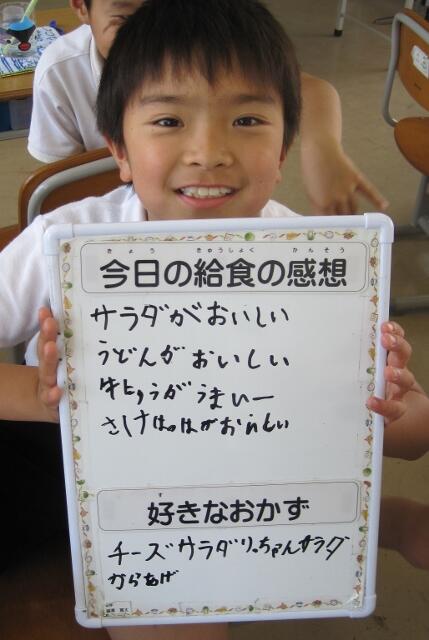 きょう きゅうしょく かんそう
今日の給食の感想
サラダがおいしい
うどんがおいしい
牛にゅうがうまいー
す
好きなおかず
チーズサラダりっちゃんサラダ
からあげ